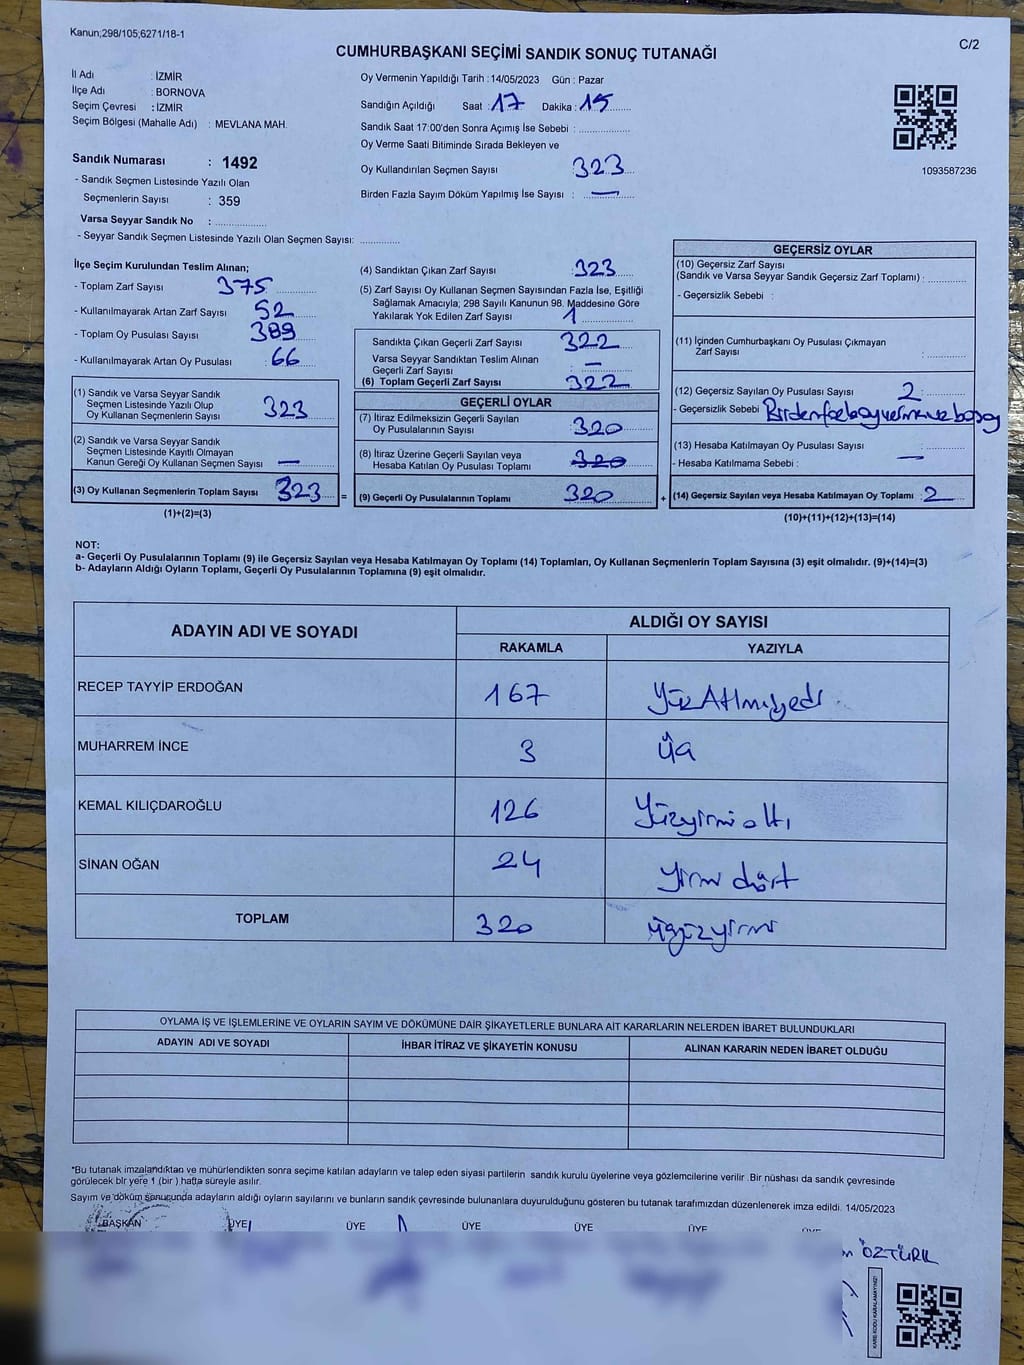 Kanun;298/105;6271/18-1
C/2
CUMHURBAŞKANI SEÇİMİ SANDIK SONUÇ TUTANAĞI
İl Adı : İZMİR
İlçe Adı : BORNOVA
Seçim Çevresi : İZMİR
Seçim Bölgesi (Mahalle Adı) : MEVLANA MAH.
Sandık Numarası : 1492
- Sandık Seçmen Listesinde Yazılı Olan
Seçmenlerin Sayısı : 359
Varsa Seyyar Sandık No : ................
- Seyyar Sandık Seçmen Listesinde Yazılı Olan Seçmen Sayısı: ............
Oy Vermenin Yapıldığı Tarih : 14/05/2023 Gün : Pazar
Sandığın Açıldığı Saat : 17 Dakika : 15
Sandık Saat 17:00'den Sonra Açımış İse Sebebi : ................
Oy Verme Saati Bitiminde Sırada Bekleyen ve
Oy Kullandırılan Seçmen Sayısı 323
Birden Fazla Sayım Döküm Yapılmış İse Sayısı : —
1093587236
İlçe Seçim Kurulundan Teslim Alınan;
- Toplam Zarf Sayısı 375
- Kullanılmayarak Artan Zarf Sayısı 52
- Toplam Oy Pusulası Sayısı 389
- Kullanılmayarak Artan Oy Pusulası 66
(1) Sandık ve Varsa Seyyar Sandık
Seçmen Listesinde Yazılı Olup
Oy Kullanan Seçmenlerin Sayısı 323
(2) Sandık ve Varsa Seyyar Sandık
Seçmen Listesinde Kayıtlı Olmayan
Kanun Gereği Oy Kullanan Seçmen Sayısı —
(3) Oy Kullanan Seçmenlerin Toplam Sayısı 323 =
(1)+(2)=(3)
(4) Sandıktan Çıkan Zarf Sayısı :323
(5) Zarf Sayısı Oy Kullanan Seçmen Sayısından Fazla İse, Eşitliği
Sağlamak Amacıyla; 298 Sayılı Kanunun 98. Maddesine Göre
Yakılarak Yok Edilen Zarf Sayısı 1
Sandıkta Çıkan Geçerli Zarf Sayısı 322
Varsa Seyyar Sandıktan Teslim Alınan
Geçerli Zarf Sayısı : —
(6) Toplam Geçerli Zarf Sayısı 322
GEÇERLİ OYLAR
(7) İtiraz Edilmeksizin Geçerli Sayılan
Oy Pusulalarının Sayısı : 320
(8) İtiraz Üzerine Geçerli Sayılan veya
Hesaba Katılan Oy Pusulası Toplamı 320
(9) Geçerli Oy Pusulalarının Toplamı 320 +
GEÇERSİZ OYLAR
(10) Geçersiz Zarf Sayısı
(Sandık ve Varsa Seyyar Sandık Geçersiz Zarf Toplamı) : ............
- Geçersizlik Sebebi :
(11) İçinden Cumhurbaşkanı Oy Pusulası Çıkmayan
Zarf Sayısı : ............
(12) Geçersiz Sayılan Oy Pusulası Sayısı 2
- Geçersizlik Sebebi
(13) Hesaba Katılmayan Oy Pusulası Sayısı —
- Hesaba Katılmama Sebebi :
(14) Geçersiz Sayılan veya Hesaba Katılmayan Oy Toplamı : 2
(10)+(11)+(12)+(13)=(14)
NOT:
a- Geçerli Oy Pusulalarının Toplamı (9) ile Geçersiz Sayılan veya Hesaba Katılmayan Oy Toplamı (14) Toplamları, Oy Kullanan Seçmenlerin Toplam Sayısına (3) eşit olmalıdır. (9)+(14)=(3)
b- Adayların Aldığı Oyların Toplamı, Geçerli Oy Pusulalarının Toplamına (9) eşit olmalıdır.
ADAYIN ADI VE SOYADI
ALDIĞI OY SAYISI
RAKAMLA YAZIYLA
RECEP TAYYİP ERDOĞAN 167 YüzAtmışyedi
MUHARREM İNCE 3 üç
KEMAL KILIÇDAROĞLU 126 Yüzyirmi altı
SİNAN OĞAN 24 yirmi dört
TOPLAM 320 üçyüzyirmi
OYLAMA İŞ VE İŞLEMLERİNE VE OYLARIN SAYIM VE DÖKÜMÜNE DAİR ŞİKAYETLERLE BUNLARA AİT KARARLARIN NELERDEN İBARET BULUNDUKLARI
ADAYIN ADI VE SOYADI İHBAR İTİRAZ VE ŞİKAYETİN KONUSU ALINAN KARARIN NEDEN İBARET OLDUĞU
*Bu tutanak imzalandıktan ve mühürlendikten sonra seçime katılan adayların ve talep eden siyasi partilerin sandık kurulu üyelerine veya gözlemcilerine verilir .Bir nüshası da sandık çevresinde
görülecek bir yere 1 (bir ) hafta süreyle asılır.
Sayım ve döküm sonucunda adayların aldığı oyların sayılarını ve bunların sandık çevresinde bulunanlara duyurulduğunu gösteren bu tutanak tarafımızdan düzenlenerek imza edildi. 14/05/2023
BAŞKAN ÜYE ÜYE ÜYE ÜYE ÜYE ÜYE
ÖZTÜRK
KARE KODU KARALAMAYINIZ!